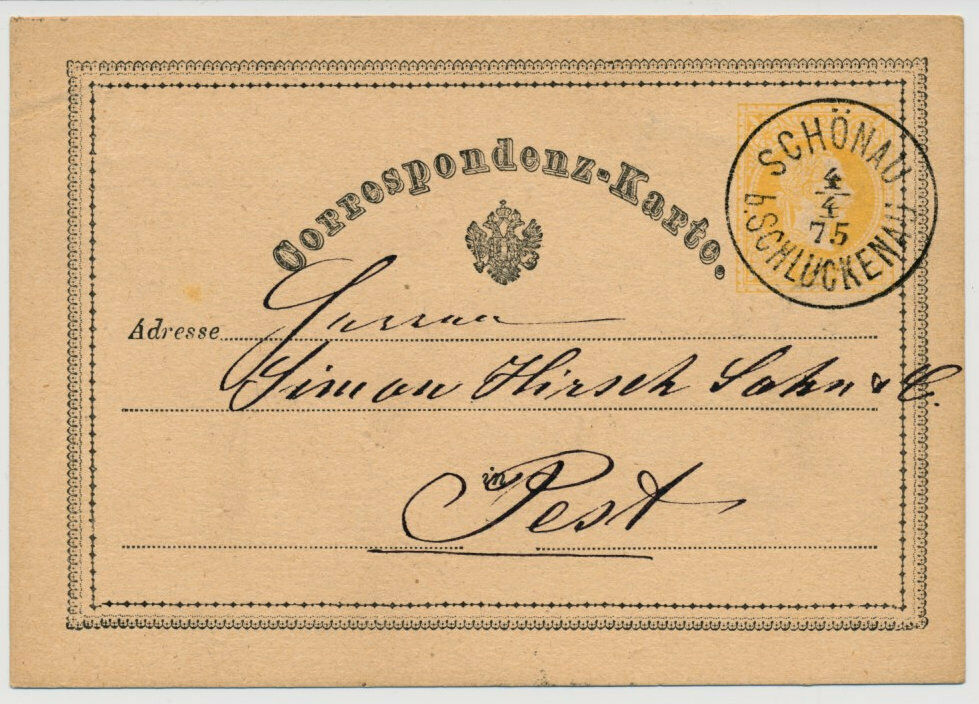 Correspondenz-Karte.
SCHÖNAU
4/4
75
b. SCHLUCKENAU
Adresse
Herren
Simon Hirsch Sohn & C.
in Pest